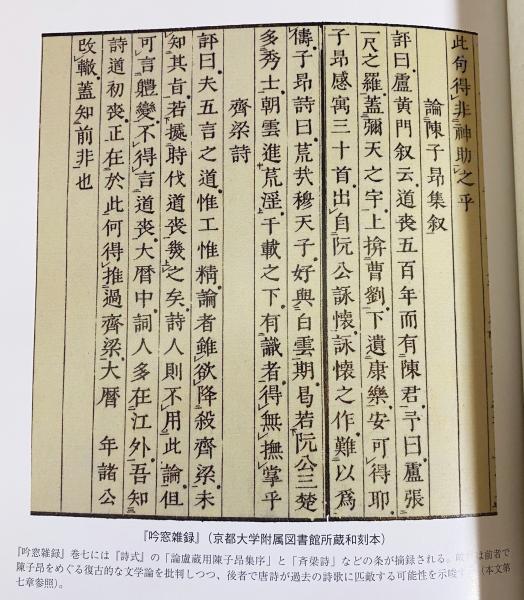 此句得非神助之乎
論陳子昂集叙
評曰盧黄門叙云道喪五百年而有陳君予曰盧張
一尺之羅蓋彌天之宇上揜曹劉下遺康樂安可得耶
子昂感寓三十首出自阮公詠懷詠懷之作難以爲
儔子昂詩曰荒哉穆天子好與白雲期曷若阮公三楚
多秀士朝雲進荒淫千載之下有識者得無撫掌乎
齊梁詩
評曰夫五言之道惟工惟精論者雖欲降殺齊梁未
知其旨若據時代道喪幾之矣詩人則不用此論但
可言體變不得言道喪大暦中詞人多在江外吾知
詩道初喪正在於此何得推過齊梁大暦 年諸公
改轍蓋知前非也
『吟窓雑録』(京都大学附属図書館所蔵和刻本)
『吟窓雑録』巻七には『詩式』の「論盧蔵用陳子昂集序」と「斉梁詩」などの条が摘録される。は前者で
陳子昂をめぐる復古的な文学論を批判しつつ、後者で唐詩が過去の詩歌に匹敵する可能性を示唆す(本文第
七章参照)。